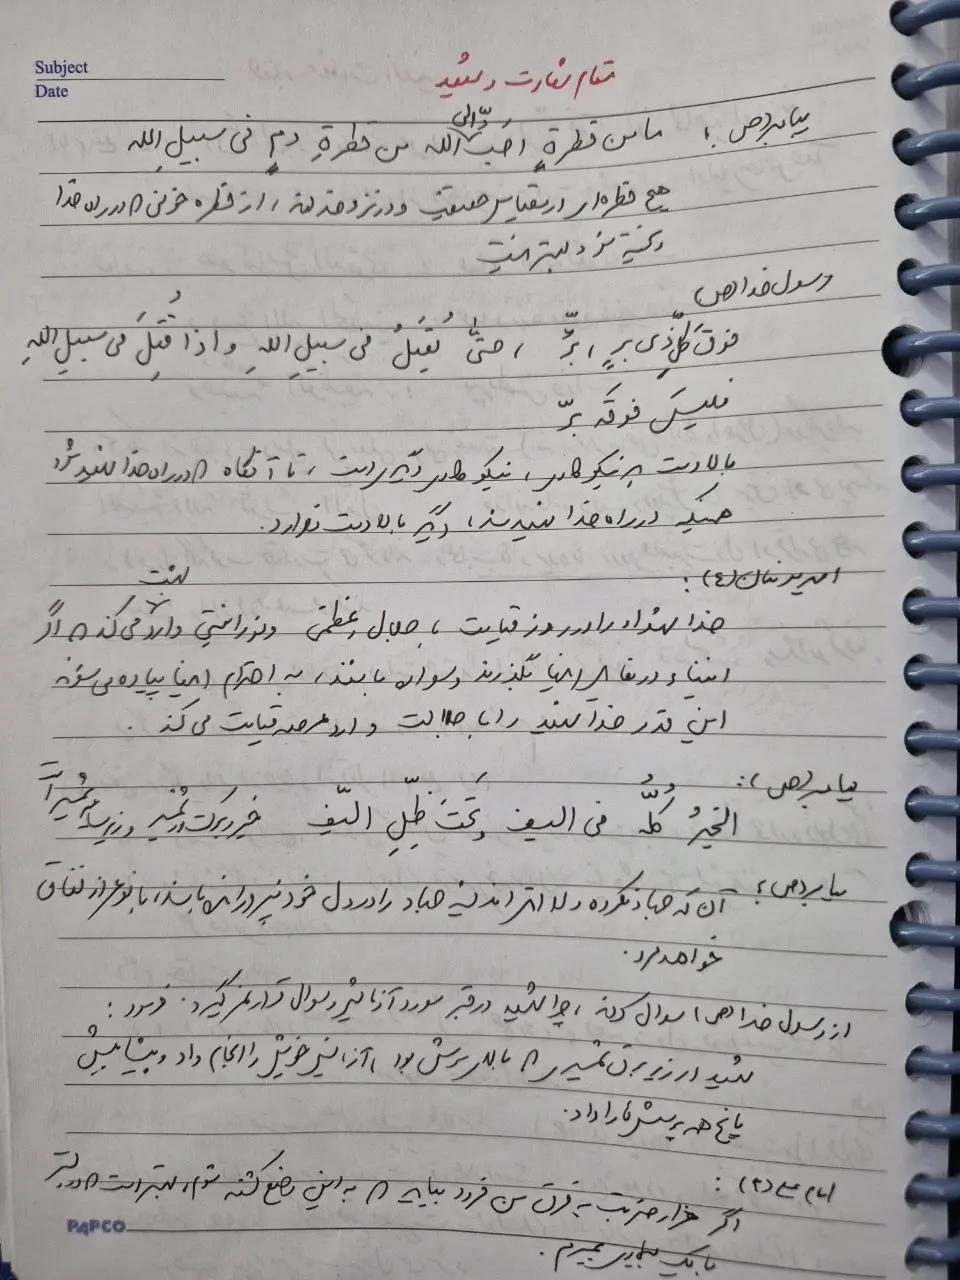 Subject
Date
مقام شهادت و شهید
پیامبر (ص) : ما من قطرةٍ اَحَبّ اِلی الله من قطرةِ دمٍ فی سبیلِ الله
هیچ قطره‌ای در مقیاس حقیقت و در نزد خداوند، از قطره خونی که در راه خدا
ریخته شود بهتر نیست
رسول خدا (ص)
فوقَ کلّ ذی برٍ، برٌّ، حتّی یُقتَلُ فی سبیلِ اللهِ و اذا قُتِلَ فی سبیلِ اللهِ
فلیسَ فوقَه برّ
بالادست هر نیکوکاری، نیکوکاری دیگری است، تا آنگاه که در راه خدا شهید شود
همینکه در راه خدا شهید شد، دیگر بالادست ندارد.
امیرمؤمنان (ع) :
خدا شهداء را در روز قیامت با جلال و عظمتی و نورانیتی وارد بهشت می‌کند که اگر
انبیاء در مقابل آنها بگذرند و سواره باشند، به احترام آنها پیاده می‌شوند
این قدر خدا شهید را با جلالت وارد عرصه قیامت می‌کند.
پیامبر (ص) :
الخیرُ کلُّهُ فی السیف و تَحْتَ ظِلِّ السّیف خیر و برکت در شمشیر و زیر سایه شمشیر است
پیامبر (ص) :
آن که جهاد نکرده و لااقل اندیشه جهاد را در دل خود نپرورانده باشد، با نوعی از نفاق
خواهد مرد.
از رسول خدا (ص) سوال کردند، چرا شهید در قبر مورد آزمایش و سوال قرار نمی‌گیرد. فرمود :
شهید در زیر برق شمشیری که بالای سرش بود، آزمایش خویش را انجام داد و پیشاپیش
پاسخ همه پرسش‌ها را داد.
امام علی (ع) :
اگر هزار ضربت به فرق من فرود بیاید که به این وضع کشته شوم، بهتر است که در بستر
با یک بیماری بمیرم.
PAPCO